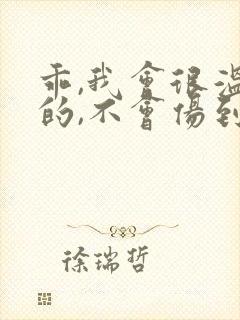 乖,我會很溫
的,不會傷到
徐瑞哲